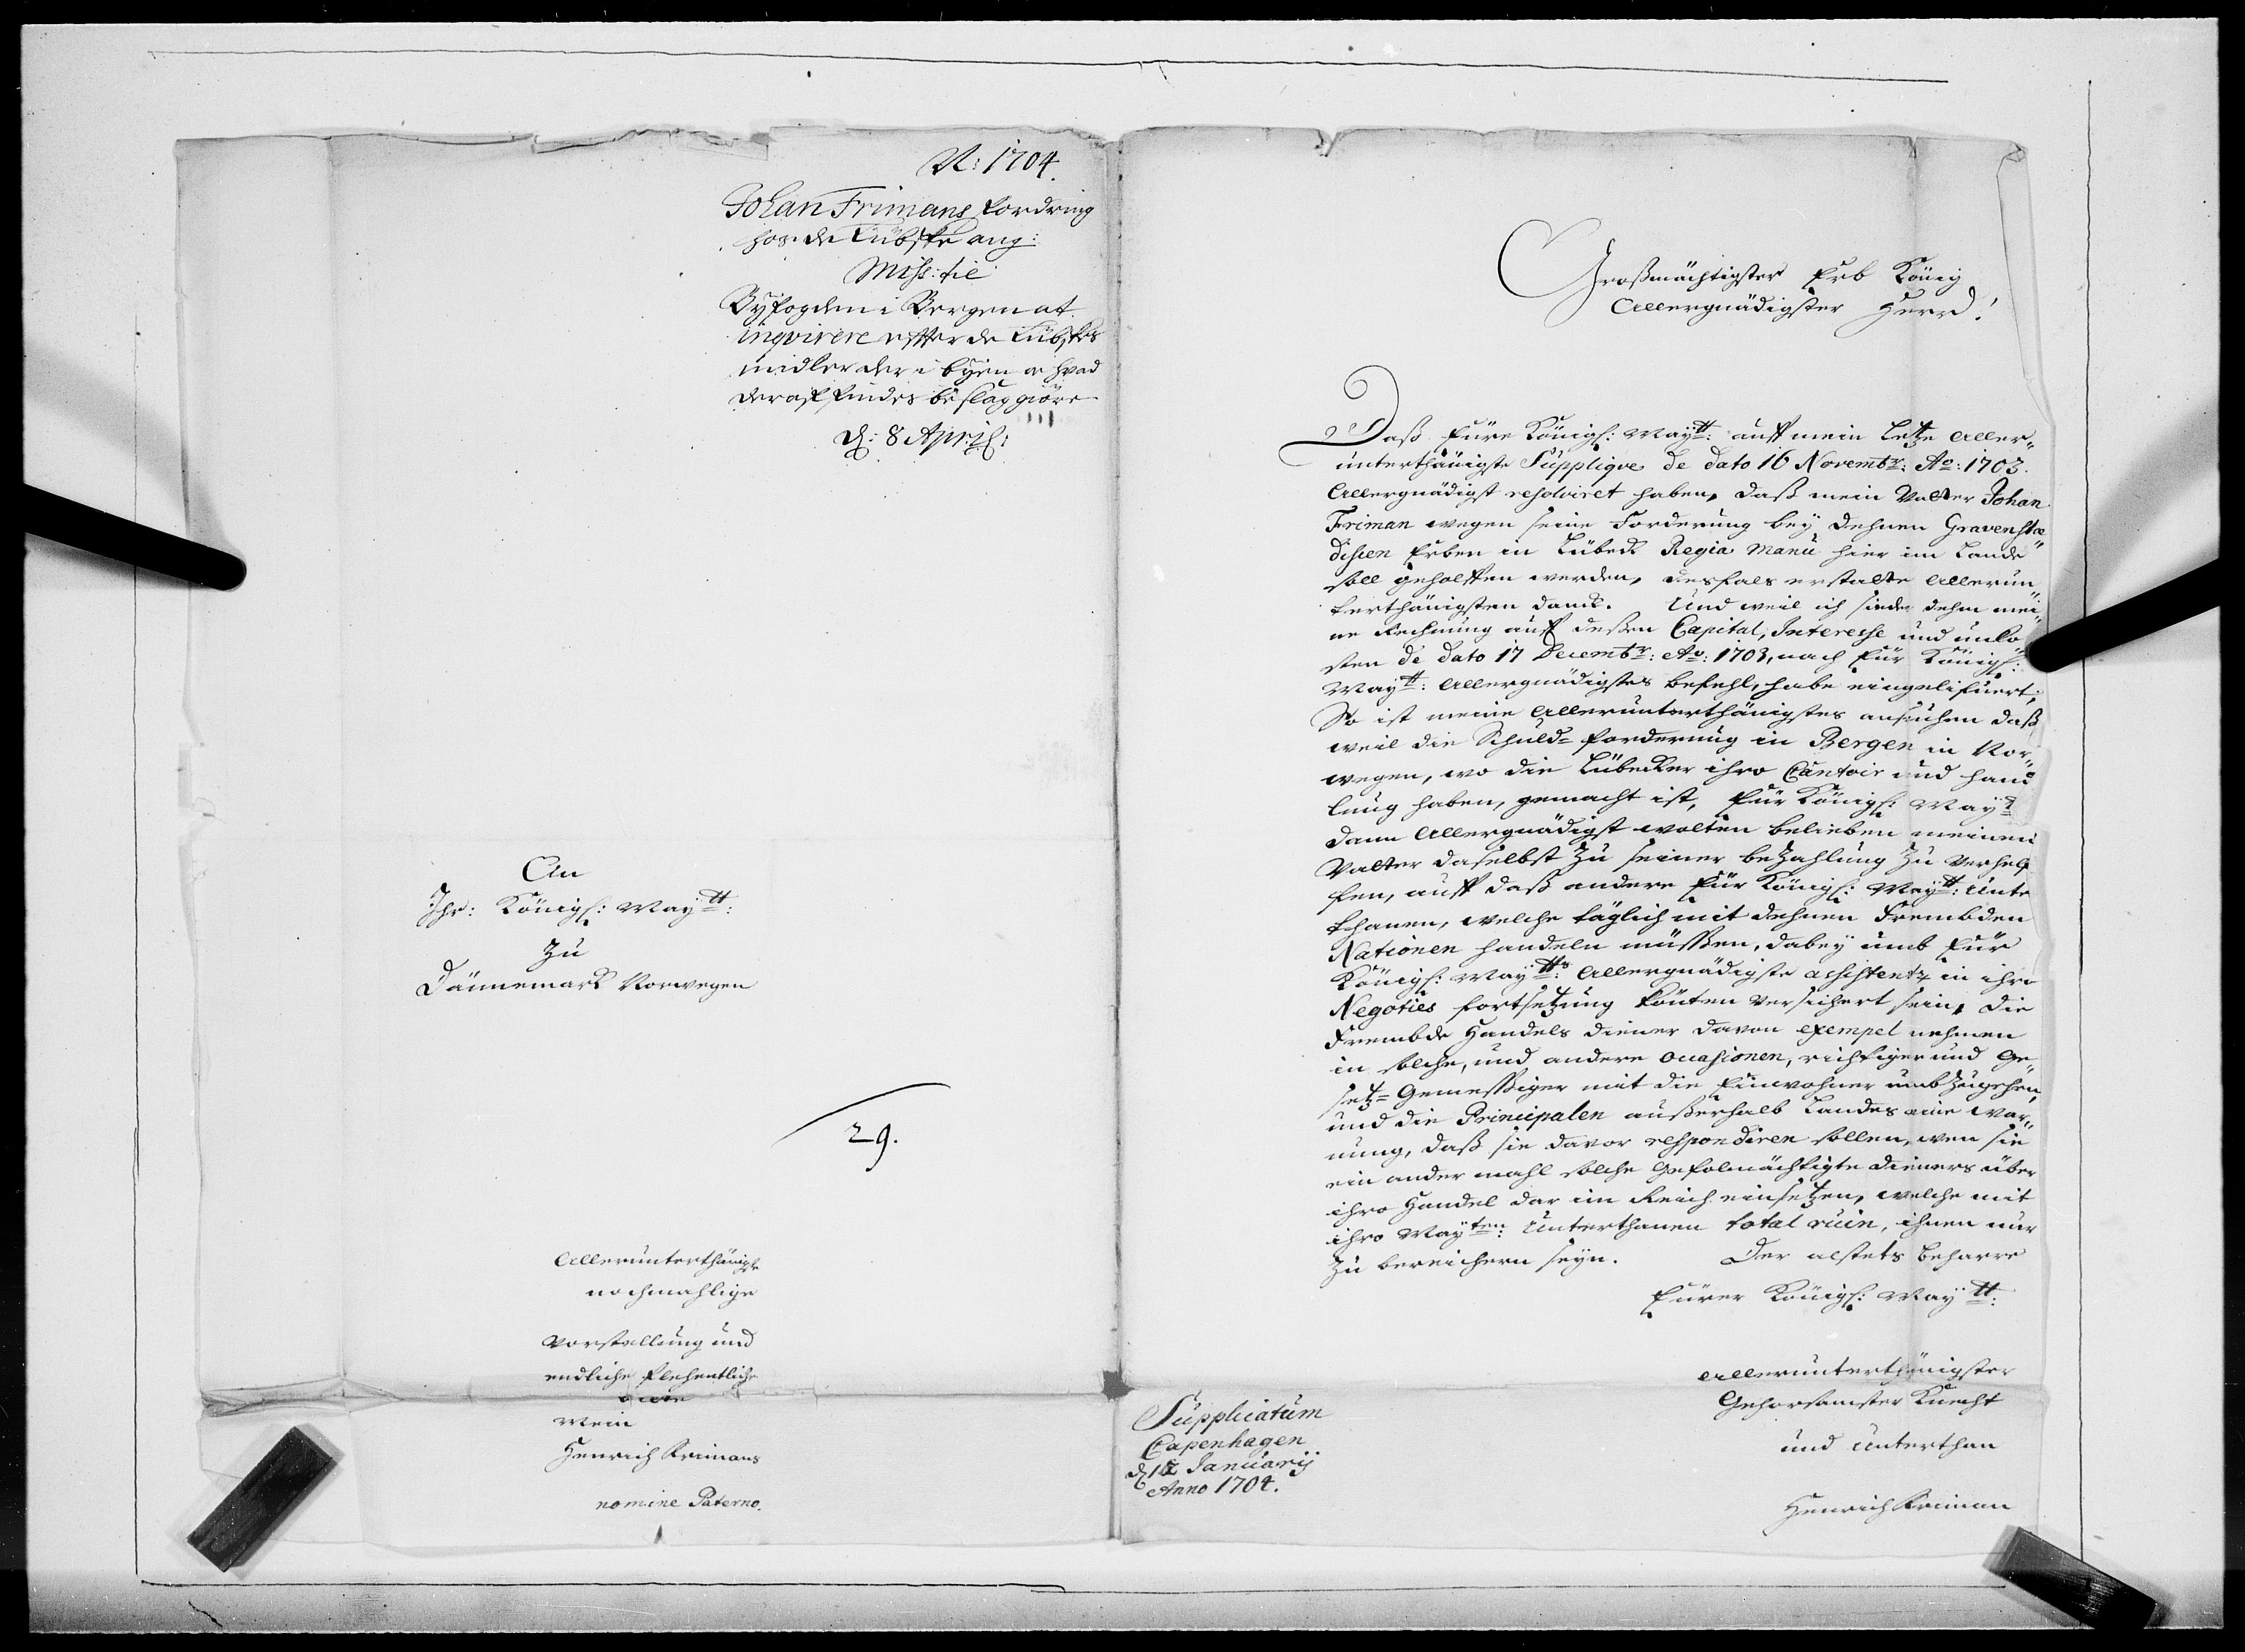 N: 1704.
Johan Frimans fordring
hos de Lübske ang:
Miss: til
Byfogden i Bergen at
inqvirere efter de Lübskes
midler der i byen oc hvad
deraf findes beslag giöre
d: 8 April:
An
Ihr: Königl: Maytt:
Zu
Dännemarck Norwegen
29.
Allerunterthänigste
nochmahlige
Vorstellung und
endliche flehentliche
bitte
Mein
Henrich Frimans
nomine Paterno.
Großmächtigster Erb König
Allergnädigster Herr!
Daß Eüre Königl: Maytt: auff mein letzte Aller"
unterthänigste Supplique de dato 16 Novembr: Ao: 1703.
Allergnädigst resolviret haben, daß mein Vatter Johan
Friman wegen seine Forderung bey dehnen Gravenstæ"
dischen Erben in Lübeck Regia manu hier im Lande
soll geholffen werden, desfals erstatte Allerun"
terthänigsten danck. Und weil ich sieder dehm mei"
ne Rechnung auff deßen Capital, Interesse und unko"
sten de dato 17 Decembr: Ao: 1703, nach Eür Königl:
Maytt: Allergnädigstes befehl, habe eingeliefuert;
So ist meine Allerunterthänigstes ansuchen daß
weil die Schuld=forderung in Bergen in Nor"
wegen, wo die Lübecker ihro Cantoir und hand"
lung haben, gemacht ist, Eür Königl: Maytt
dann Allergnädigst wolten belieben meinen
Vatter daselbst zu seiner bezahlung zu verhelf
fen, auff daß andere Eür Königl: Maytt: Unter
thanen, welche täglich mit dehnen Frembden
Nationen handeln müssen, dabey umb Eür
Königl: Maytts: Allergnädigste assistentz in ihro
Negoties fortsetzung könten versichert sein, die
Frembde Handels diener davon exempel nehmen
in solche, und andere ocasionen, richtiger und Ge"
setz=Gemessiger mit die Einwohner umbzugehen,
und die Principalen außerhalb Landes eine war"
nung, daß sie davor respondiren sollen, wen sie
ein ander mahl solche Gefolmächtigte dieners über
ihro Handel dar im Reich einsetzen, welche mit
ihro Mayten: Unterthanen total ruin, ihnen nur
zu bereichern seyn. Der alstets beharre
Eürer Königl: Maytt:
Allerunterthänigster
Gehorsamster Knecht
und Unterthan
Henrich Friman
Supplicatum
Capenhagen
d 12 Januarij
Anno 1704.